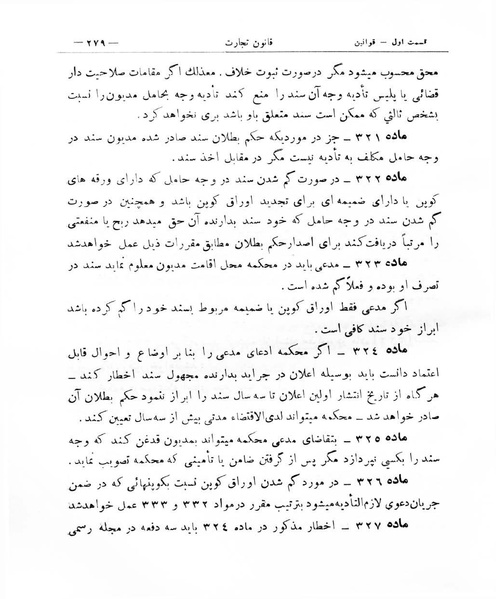 قسمت اول – قوانین قانون تجارت – ۲۷۹ –
محق محسوب میشود مگر درصورت ثبوت خلاف . معذلك اگر مقامات صلاحیت دار
قضائی یا پلیس تأدیه وجه آن سند را منع کند تأدیه وجه بحامل مدیون را نسبت
بشخص ثالثی که ممکن است سند متعلق باو باشد بری نخواهد کرد .
ماده ۳۲۱ – جز در موردیکه حکم بطلان سند صادر شده مدیون سند در
وجه حامل مکلف به تأدیه نیست مگر در مقابل اخذ سند .
ماده ۳۲۲ – در صورت گم شدن سند در وجه حامل که دارای ورقه های
کوپن یا دارای ضمیمه ای برای تجدید اوراق کوپن باشد و همچنین در صورت
گم شدن سند در وجه حامل که خود سند بدارنده آن حق میدهد ربح یا منفعتی
را مرتباً دریافت کند برای اصدار حکم بطلان مطابق مقررات ذیل عمل خواهد شد
ماده ۳۲۳ – مدعی باید در محکمه محل اقامت مدیون معلوم نماید سند در
تصرف او بوده و فعلاً گم شده است .
اگر مدعی فقط اوراق کوپن یا ضمیمه مربوط بسند خود را گم کرده باشد
ابراز خود سند کافی است .
ماده ۳۲۴ – اگر محکمه ادعای مدعی را بنا بر اوضاع و احوال قابل
اعتماد دانست باید بوسیله اعلان در جراید بدارنده مجهول سند اخطار کند –
هرگاه از تاریخ انتشار اولین اعلان تا سه سال سند را ابراز ننمود حکم بطلان آن
صادر خواهد شد – محکمه میتواند لدی الاقتضاء مدتی بیش از سه سال تعیین کند .
ماده ۳۲۵ – بتقاضای مدعی محکمه میتواند بمدیون قدغن کند که وجه
سند را بکسی نپردازد مگر پس از گرفتن ضامن یا تأمینی که محکمه تصویب نماید .
ماده ۳۲۶ – در مورد گم شدن اوراق کوپن نسبت بکوپنهائی که در ضمن
جریان دعوی لازم التأدیه میشود بترتیب مقرر در مواد ۳۳۲ و ۳۳۳ عمل خواهد شد
ماده ۳۲۷ – اخطار مذکور در ماده ۳۲۴ باید سه دفعه در مجله رسمی